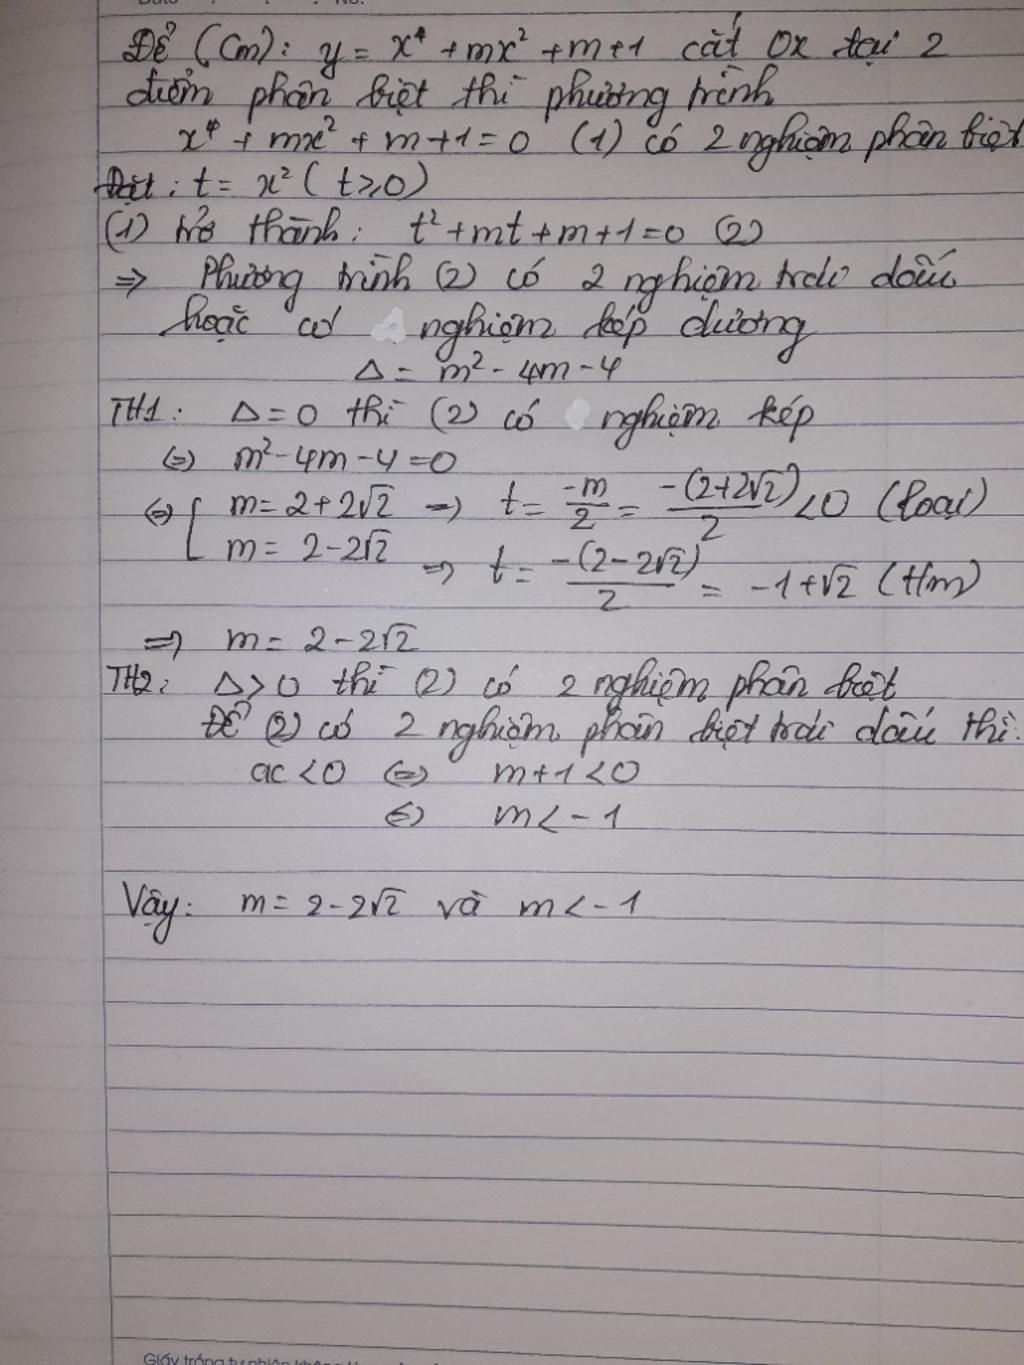 Để (Cm): y = x⁴ + mx² + m+1 cắt Ox tại 2
điểm phân biệt thì phương trình
x⁴ + mx² + m+1 = 0 (1) có 2 nghiệm phân biệt
Đặt: t = x² (t ≥ 0)
(1) trở thành: t² + mt + m + 1 = 0 (2)
=> Phương trình (2) có 2 nghiệm trái dấu
hoặc có nghiệm kép dương
Δ = m² - 4m - 4
TH1: Δ = 0 thì (2) có nghiệm kép
⇔ m² - 4m - 4 = 0
⇔ [ m = 2 + 2√2 => t = -m/2 = -(2+2√2)/2 < 0 (loại)
m = 2 - 2√2 => t = -(2 - 2√2)/2 = -1 + √2 (t/m)
=> m = 2 - 2√2
TH2: Δ > 0 thì (2) có 2 nghiệm phân biệt
Để (2) có 2 nghiệm phân biệt trái dấu thì:
ac < 0 ⇔ m + 1 < 0
⇔ m < -1
Vậy: m = 2 - 2√2 và m < -1